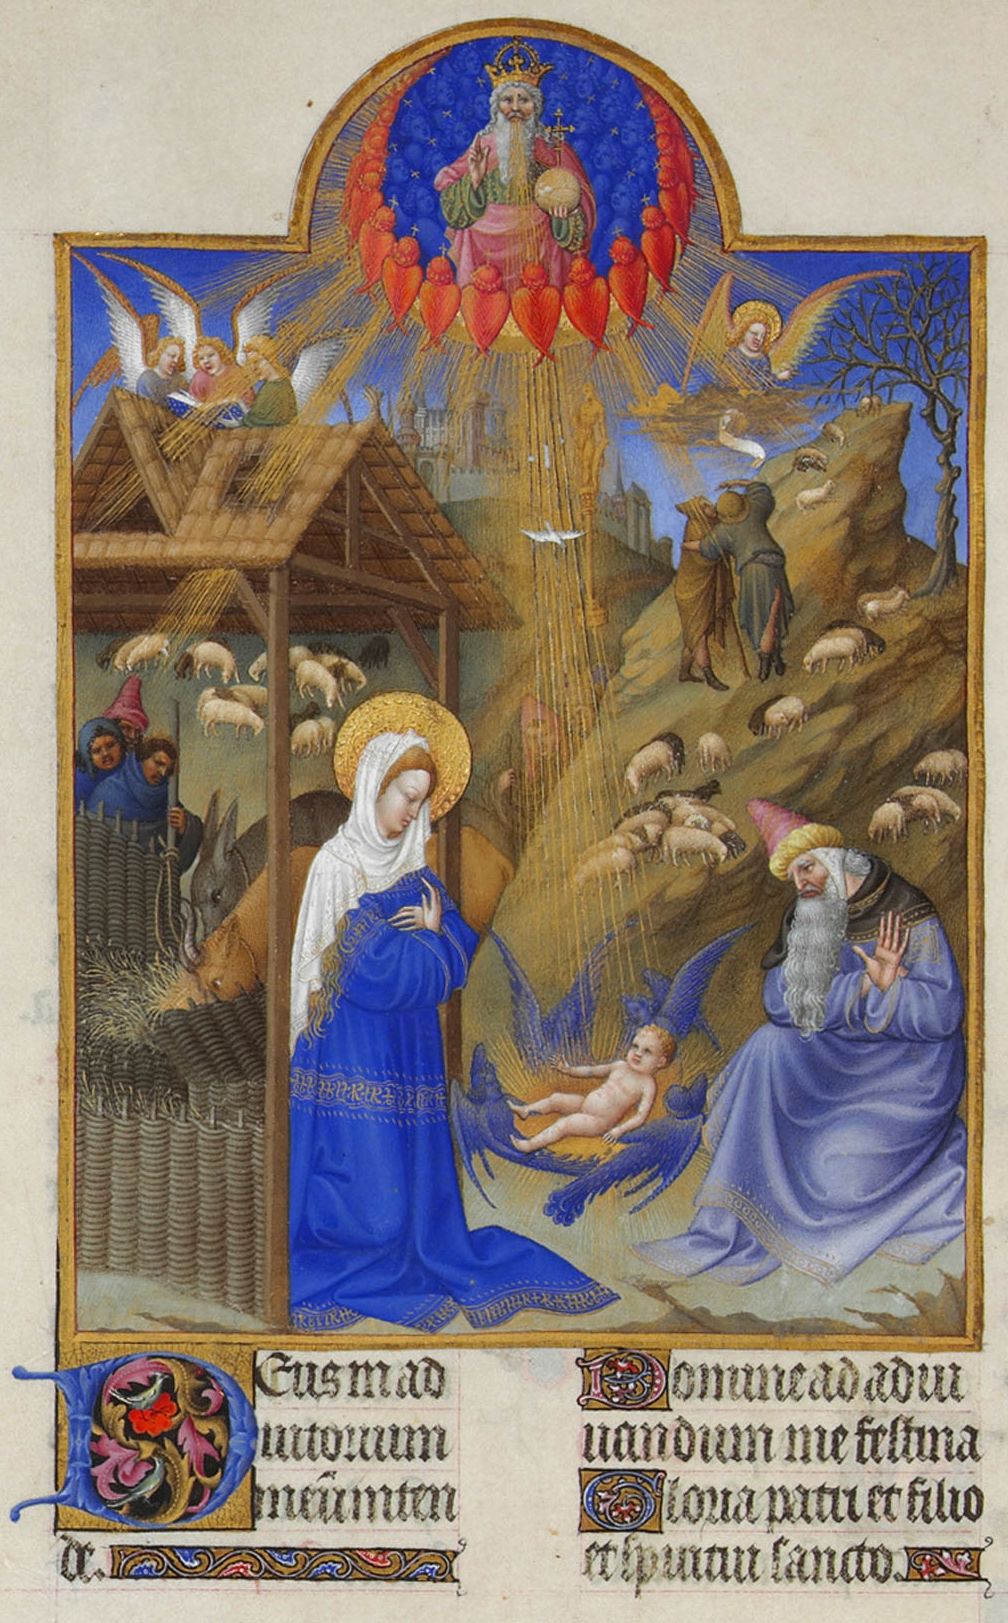 Deus in ad
iutorium
meū inten
de.
Domine ad adiu
uandum me festina
Gloria patri et filio
et spiritui sancto.